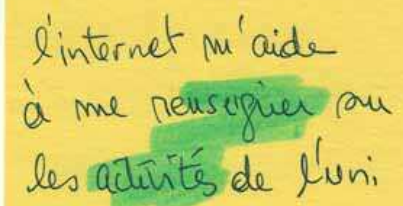 l'internet m'aide
à me renseigner sur
les activités de l'uni